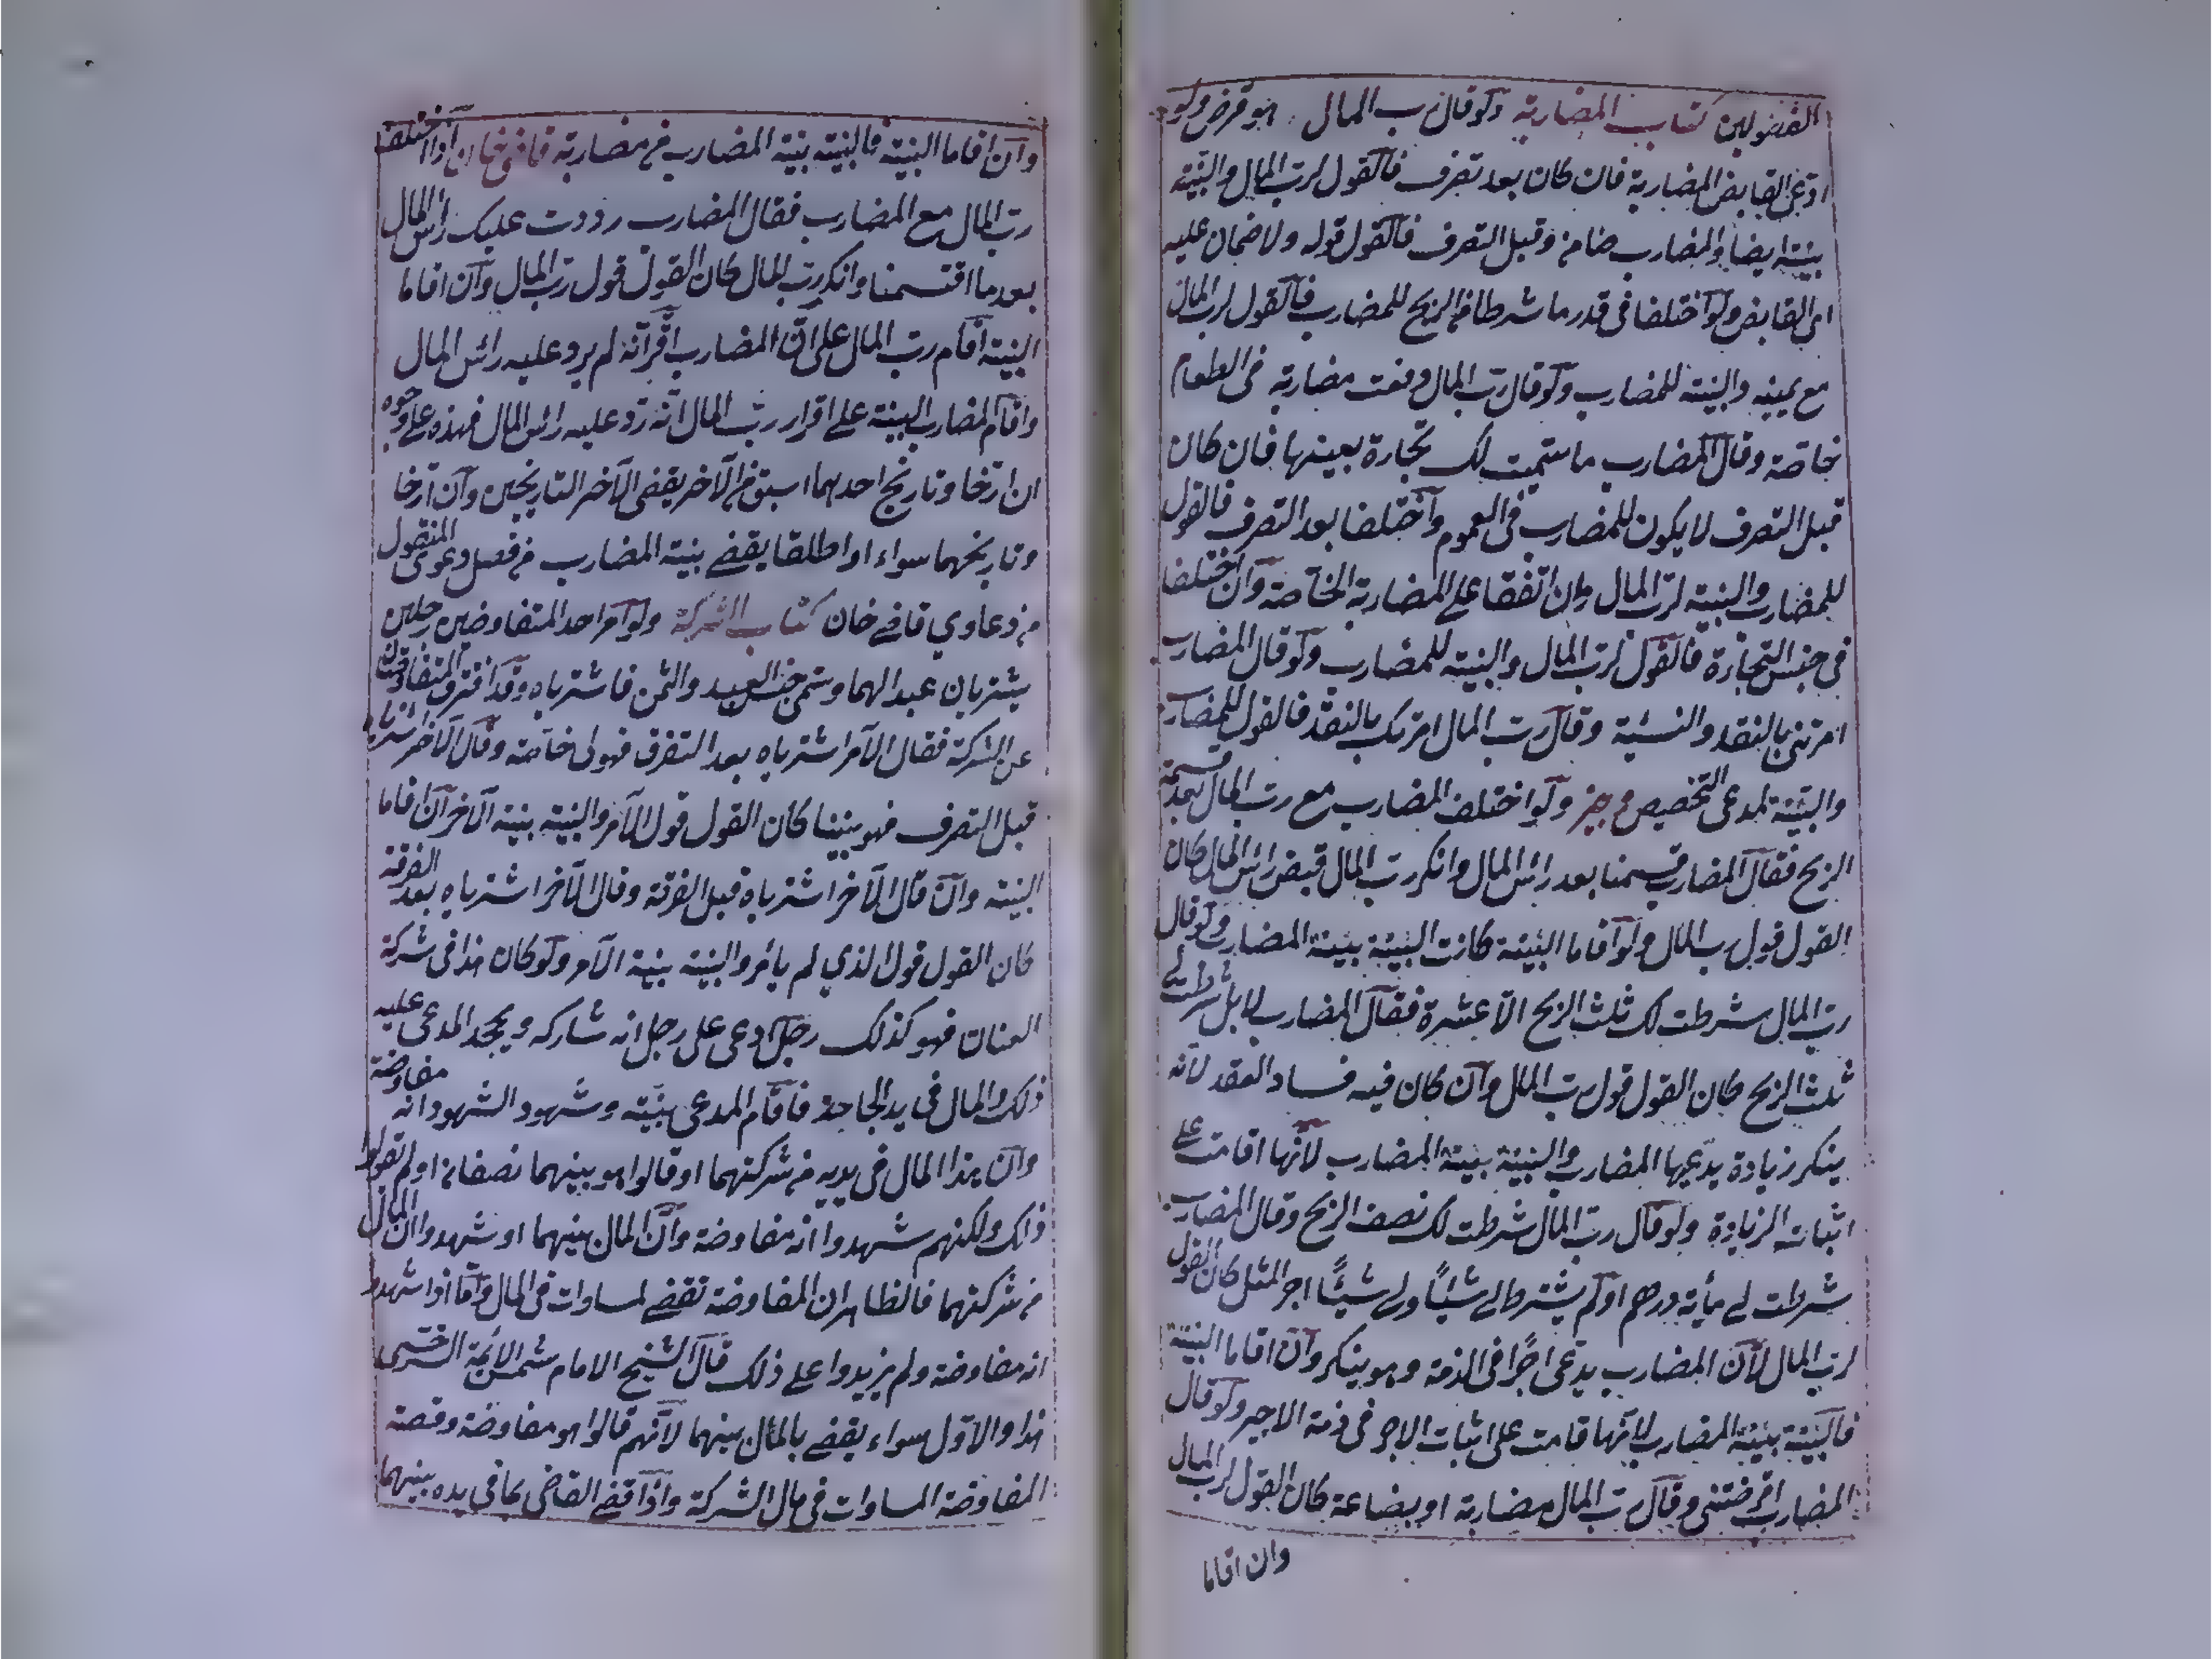 الفضولين كتاب المضاربة ولو قال رب المال هو قرض ولو
ادعى القابض المضاربة فان كان بعد تصرف فالقول لرب المال والبينة
بينته ايضا والمضارب ضامن وقبل التصرف فالقول قوله ولا ضمان عليه
اى القابض ولو اختلفا فى قدر ما شرطا من الربح للمضارب فالقول لرب المال
مع يمينه والبينة للمضارب ولو قال رب المال دفعت مضاربة فى الطعام
خاصة وقال المضارب ما سميت لك تجارة بعينها فان كان
قبل التصرف لا يكون للمضارب فى العموم وآختلفا بعد التصرف فالقول
للمضارب والبينة لرب المال وان اتفقا على المضاربة الخاصة وآن اختلفا
فى جنس التجارة فالقول لرب المال والبينة للمضارب ولو قال المضارب
امرتنى بالنقد والنسيئة وقال رب المال امرتك بالنقد فالقول للمضارب
والبينة لمدعى التخصيص وجيز ولو اختلف المضارب مع رب المال بعد قسمة
الربح فقال المضارب قسمنا بعد رائس المال وانكر رب المال قبض رائس المال كان
القول قول رب المال ولو آقاما البينة كانت البينة بينة المضارب ولو قال
رب المال شرطت لك ثلث الربح الا عشرة فقال المضارب لا بل شرطت لى
ثلث الربح كان القول قول رب المال وآن كان فيه فساد العقد لانه
ينكر زيادة يدعيها المضارب والبينة بينة المضارب لانها اقامت على
اثبات الزيادة ولو قال رب المال شرطت لك نصف الربح وقال المضارب
شرطت لى مأية درهم او لم يشترط لى شيئاً ولى شيئاً اجر المثل كان القول
لرب المال لان المضارب يدعى اجرًا فى الذمة وهو ينكر وآن اقاما البينة
فالبينة بينة المضارب لانها قامت على اثبات الاجر فى ذمة الاجير ولو قال
المضارب اقرضتنى وقال رب المال مضاربة او بضاعة كان القول لرب المال
وان اقاما
وآن اقاما البينة فالبينة بينة المضارب من مضاربة قاضى خان اذا اختلف
رب المال مع المضارب فقال المضارب رددت عليك رأس المال
بعد ما اقتسمنا وانكر رب المال كان القول قول رب المال وآن اقاما
البينة آقام رب المال على ان المضارب اقر انه لم يرد عليه رائس المال
واقام المضارب البينة على اقرار رب المال انه رد عليه رائس المال فهذه على وجوه
ان ارخا وتاريخ احدهما اسبق من الآخر يقضى لآخر التاريخين وآن ارخا
وتاريخهما سواء او اطلقا يقضى بينة المضارب من فصل دعوى المنقول
من دعاوي قاضى خان كتاب الشركة ولو آمر احد المتفاوضين رجلين
يشتريان عبدا لهما وسمى جنس العبد والثمن فاشترياه وقد افترق المتفاوضان
عن الشركة فقال الآمر اشترياه بعد التفرق فهو لى خاصة وقال الآخر اشترياه
قبل التصرف فهو بيننا كان القول قول الآمر والبينة بينة الآخر آن اقاما
البينة وآن قال الآخر اشترياه قبل الفرقة وقال الآخر اشترياه بعد الفرقة
كان القول قول الذي لم يأمر والبينة بينة الآمر ولو كان هذا فى شركة
العنان فهو كذلك رجل ادعى على رجل انه شاركه ويجحد المدعى عليه
ذلك والمال فى يد الجاحد فاقام المدعى بينة وشهود الشهود انه مفاوضة
وآن هذا المال فى يديه من شركتهما او قالوا هو بينهما نصفان او لم يقولوا
ذالك ولكنهم شهدوا انه مفاوضة وآن المال بينهما او شهدوا ان المال
من شركتهما فالظاهر ان المفاوضة تقضى لمساوات فى المال واما اذا شهدوا
انه مفاوضة ولم يزيدوا على ذلك قال الشيخ الامام شمس الائمة السرخسى
هذا والاول سواء يقضى بالمال بينهما لانهم قالوا هو مفاوضة وقصة
المفاوضة المساوات فى مال الشركة واذا قضى القاضى بما فى يده بينهما